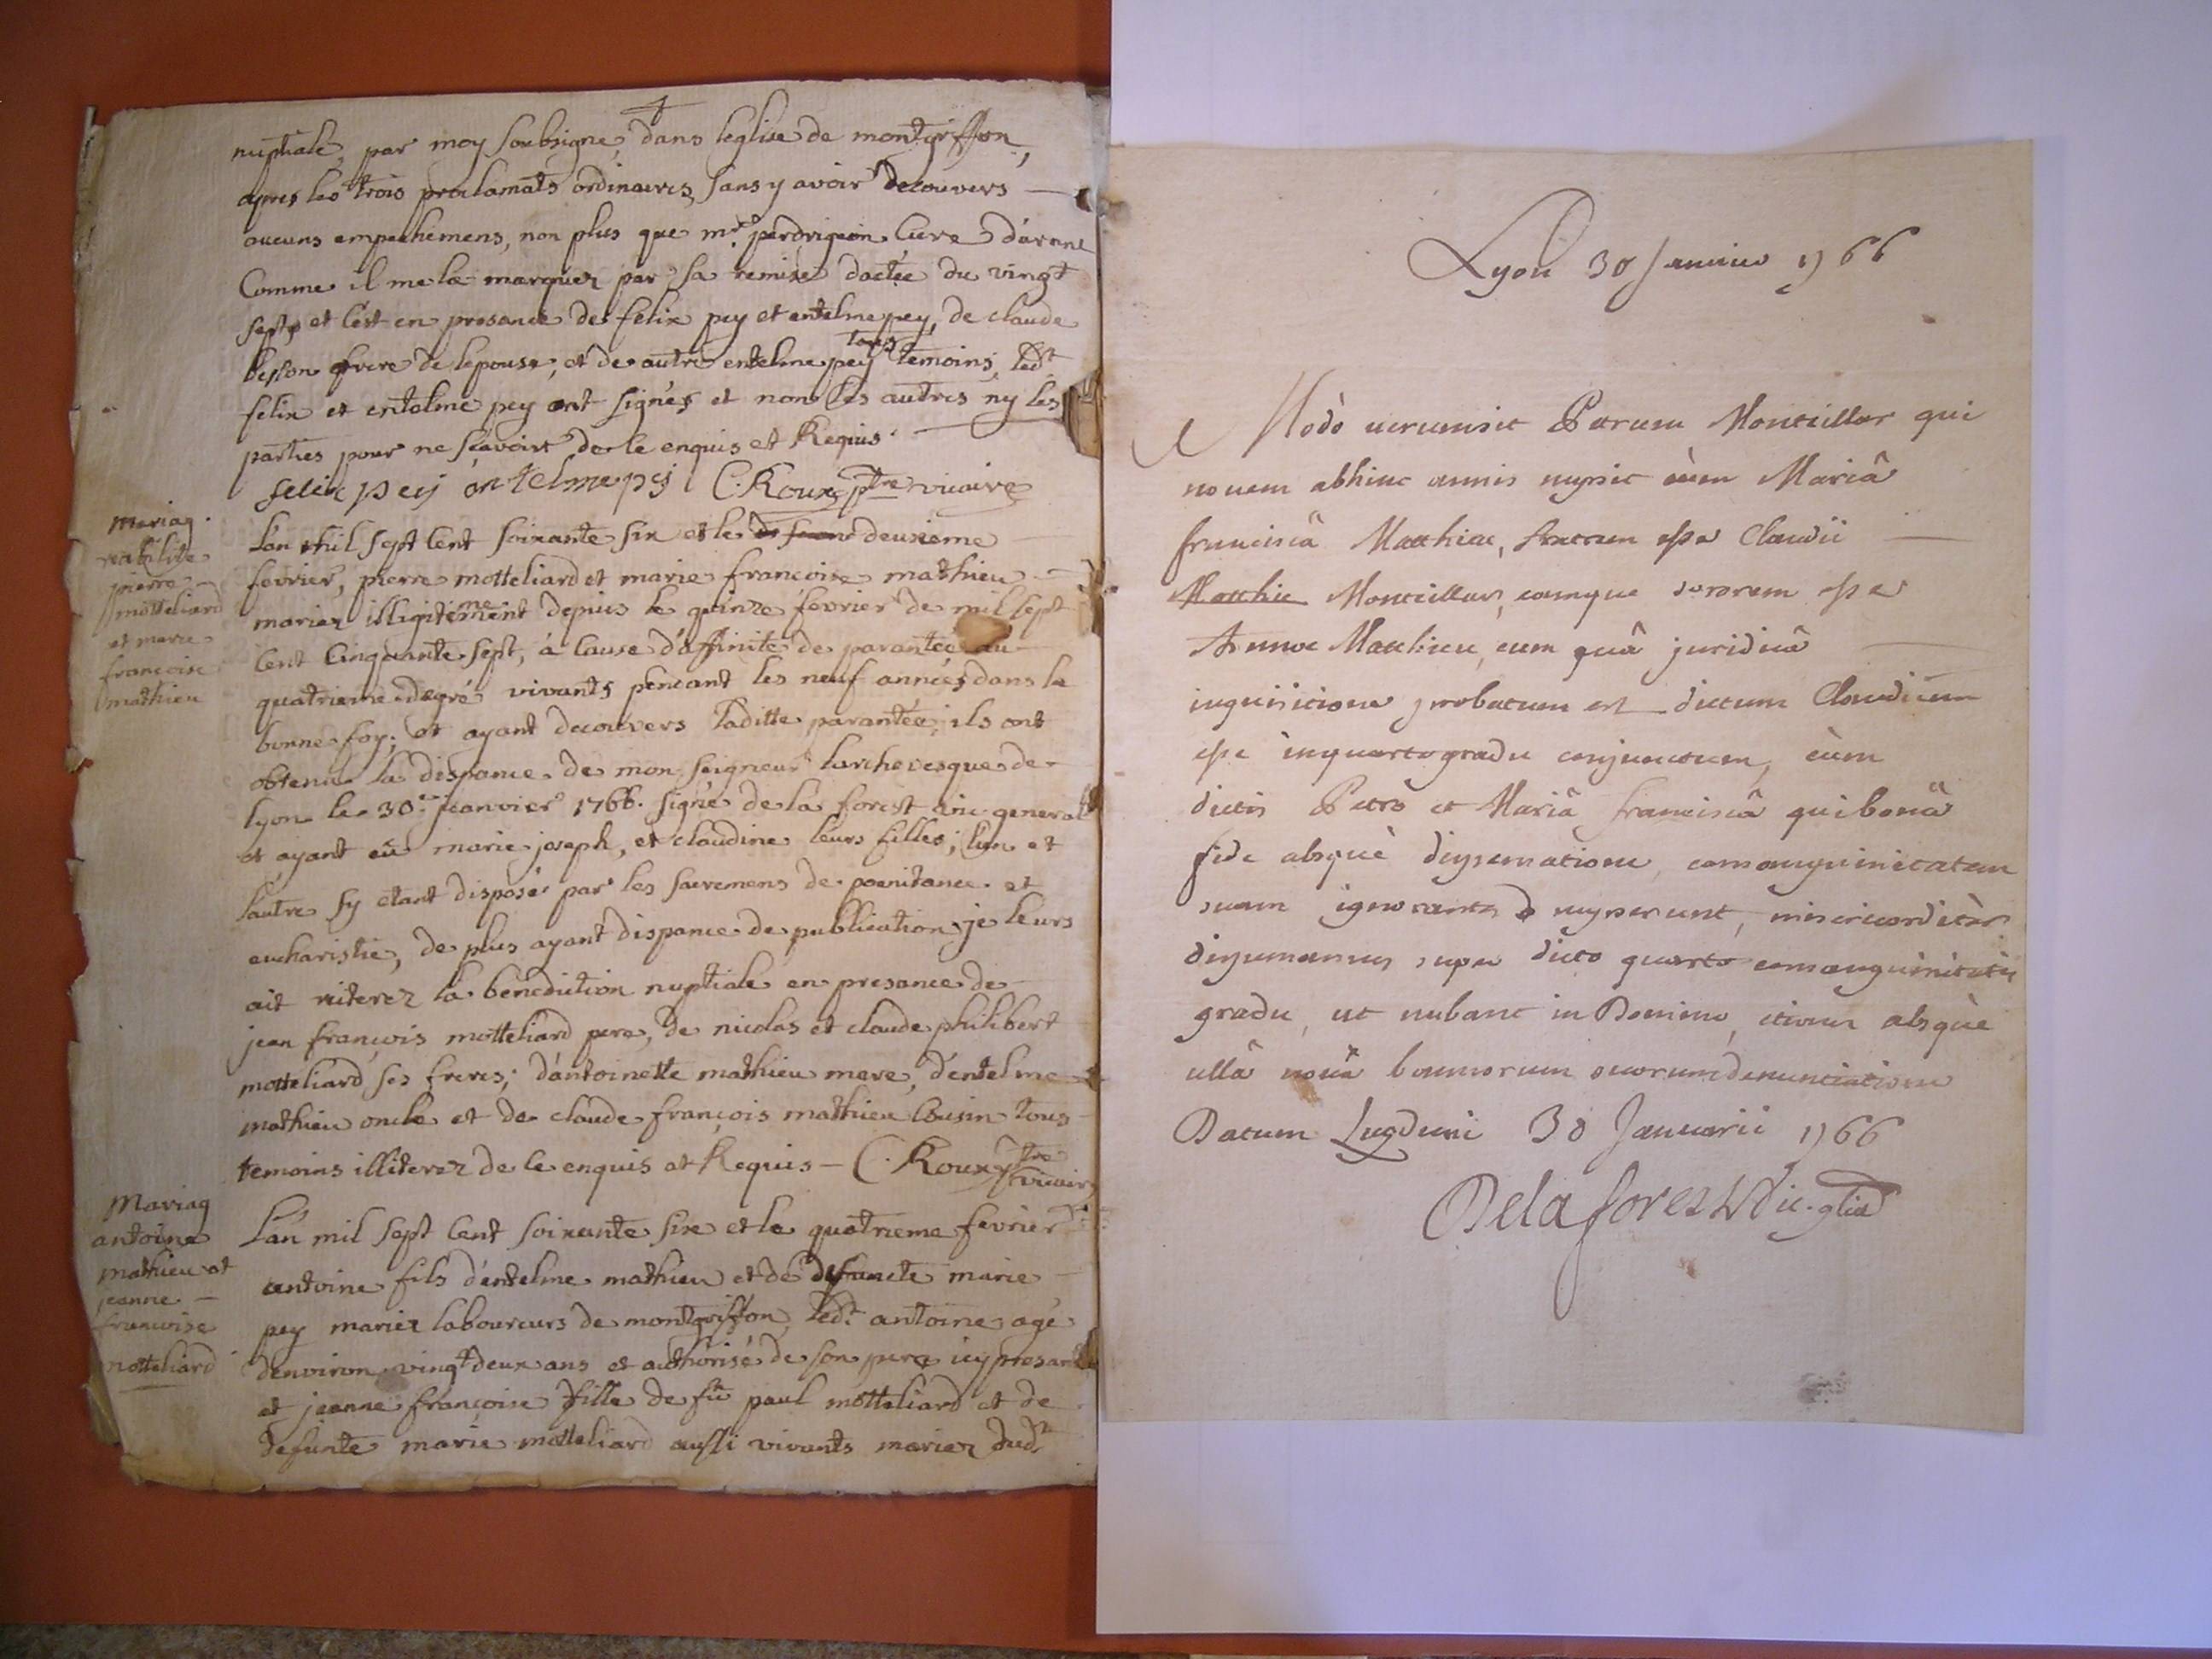 nuptiale, par moy soubsigne, dans leglise de montgriffon,
apres les trois proclamats ordinaires, sans y avoir decouvers
aucuns empechemens, non plus que mre perdrigeon Cure d'aranc
Comme il me la marquer par sa remise dactée du vingt
sept, et c'est en presance de felix pey et entelme pey, de claude
besson frere de lepouse, et de autre entelme pey tous temoins, led.t
felix et entelme pey ont signés et non les autres ny les
parties pour ne sçavoir de le enquis et Requis.
felix pey antelme pej C. Roux ptre vicaire
mariag.
reabilite
pierre
motteliard
et marie
francoise
mathieu
L'an mil sept cent soixante six et le deuxieme
fevrier, pierre motteliard et marie françoise mathieu
mariez illigitimement depuis le quinze fevrier de mil sept
cent cinquante sept, à cause d'affinite de parantée au
quatrieme degré vivants pendant les neuf années dans la
bonne foy; et ayant decouvers laditte parantée, ils ont
obtenu la dispance de mon seigneur larchevesque de
lyon le 30e jeanvier 1766. signe de la forest vic. general
et ayant eû marie joseph, et claudine leurs filles; l'un et
lautre sy etant disposé par les sacremens de poenitance et
eucharistie, de plus ayant dispance de publication je leurs
ait reiterez la benediction nuptiale en presance de
jean françois motteliard pere, de nicolas et claude philibert
motteliard ses freres; d'antoinette mathieu mere, d'entelme
mathieu oncle et de claude françois mathieu cousin tous
temoins illiterez de le enquis et Requis – C. Roux ptre
vicaire
Mariag
antoine
mathieu et
jeanne –
francoise
motteliard
L'an mil sept cent soixante six et le quatrieme fevrier
antoine fils d'entelme mathieu et de defuncte marie
pey mariez laboureurs de montgriffon, led.t antoine agé
denviron vingt deux ans et authorisé de son pere icy presant
et jeanne françoise fille de fû paul motteliard et de
defunte marie motteliard aussi vivants mariez dud.t
Lyon 30 Janvier 1766
Modò Petrum Montillar qui
novem abhinc annis nupsit cùm Mariâ
franciscâ Matthieu, fratrem esse Claudii
Matthie Montillar, eamque sororem esse
Annae Matthieu, cum quâ juridicâ
inquisitione probatum est dictum Claudium
esse in quarto gradu conjunctum, cùm
dictis Petro et Mariâ franciscâ qui bonâ
fide absquè dispensatione, consanguinitatem
suam ignorantes nupserunt, misericorditèr
dispensamus super dicto quarto consanguinitatis
gradu, ut nubant in Domino, etiam absquè
ullâ novâ bannorum suorum denunciatione
Datum Lugduni 30 Januarii 1766
Delaforest Vic. gl̃is